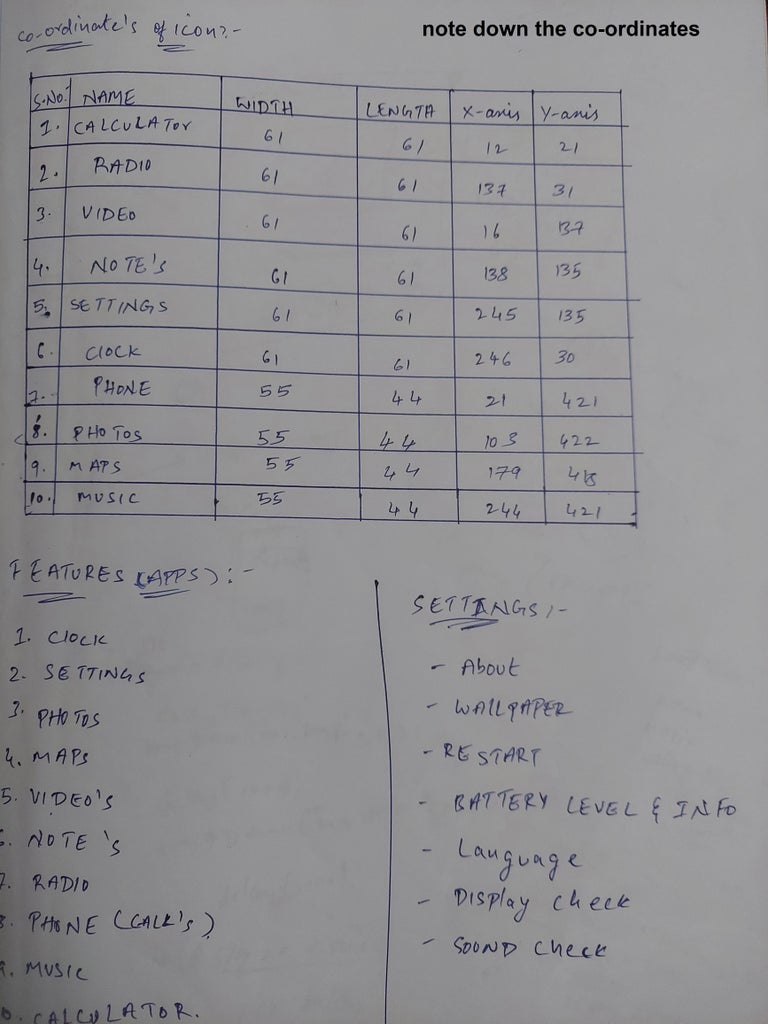 co-ordinate's of icon:-
note down the co-ordinates
S.No. NAME WIDTH LENGTH X-axis Y-axis
1. CALCULATOr 61 61 12 21
2. RADIO 61 61 137 31
3. VIDEO 61 61 16 137
4. NOTE'S 61 61 138 135
5. SETTINGS 61 61 245 135
6. ClOCK 61 61 246 30
7. PHONE 55 44 21 421
8. PHOTOS 55 44 103 422
9. MAPS 55 44 179
10. MUSIC 55 44 244 421
FEATURES (APPS):-
1. ClOCK
2. SETTINGS
3. PHOTOS
4. MAPS
5. VIDEO'S
6. NOTE'S
7. RADIO
8. PHONE
9. MUSIC
0. CALCULATOR.
SETTINGS:-
- About
- WAllPAPER
- RESTART
- BATTERY LEVEL & INFO
- Language
- DISPlay Check
- SOUND Check